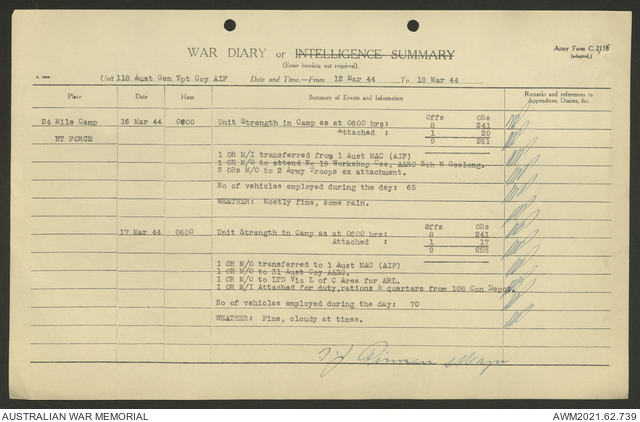 Army Form C. 2118
(adapted.)
WAR DIARY or INTELLIGENCE SUMMARY
(Erase heading not required).
Unit 118 Aust Gen Tpt Coy AIF Date and Time.—From 12 Mar 44 To 18 Mar 44
Place Date Hour Summary of Events and Information Remarks and references to Appendices, Diaries, &c.
24 Mile Camp 16 Mar 44 0600 Unit Strength in Camp as at 0600 hrs: Offs ORs
8 241
Attached : 1 20
NT FORCE 9 261
1 OR M/I transferred from 1 Aust MAC (AIF)
1 OR M/O to attend No 19 Workshop Cse, AASC Sch N Geelong.
3 ORs M/O to 2 Army Troops ex attachment.
No of vehicles employed during the day: 65
WEATHER: Mostly fine, some rain.
17 Mar 44 0600 Unit Strength in Camp as at 0600 hrs: Offs ORs
8 241
Attached : 1 17
9 258
1 OR M/O transferred to 1 Aust MAC (AIF)
1 OR M/O to 31 Aust Coy AASC.
1 OR M/O to LTD Vic L of C Area for ARL.
1 OR M/I Attached for duty,rations & quarters from 108 Con Depot.
No of vehicles employed during the day: 70
WEATHER: Fine, cloudy at times.
AUSTRALIAN WAR MEMORIAL AWM2021.62.739